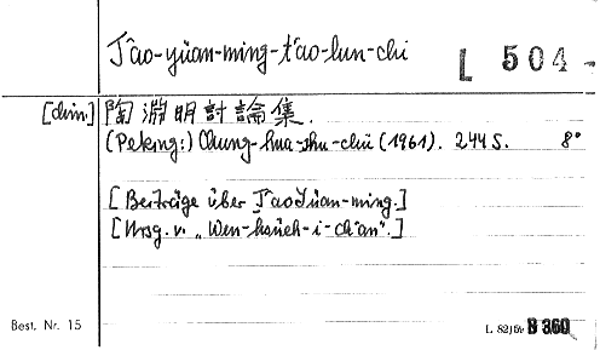 T'ao-yüan-ming-t'ao-lun-chi
L 504-
[chin.] 陶淵明討論集.
(Peking:) Chung-hua-shu-chü (1961). 244 S. 8°
[Beiträge über T'ao Yüan-ming.]
[Hrsg. v. „Wen-hsüeh-i-ch'an".]
Best. Nr. 15
B 360